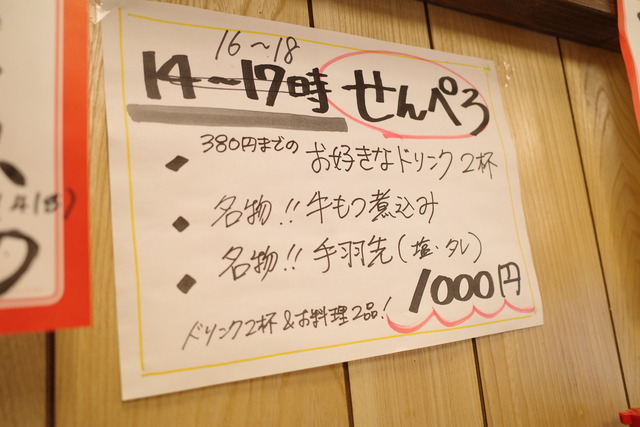 16〜18
14〜17時 せんべろ
380円までの お好きなドリンク2杯
名物!! 牛もつ煮込み
名物!! 手羽先(塩・タレ)
1000円
ドリンク2杯&お料理2品!